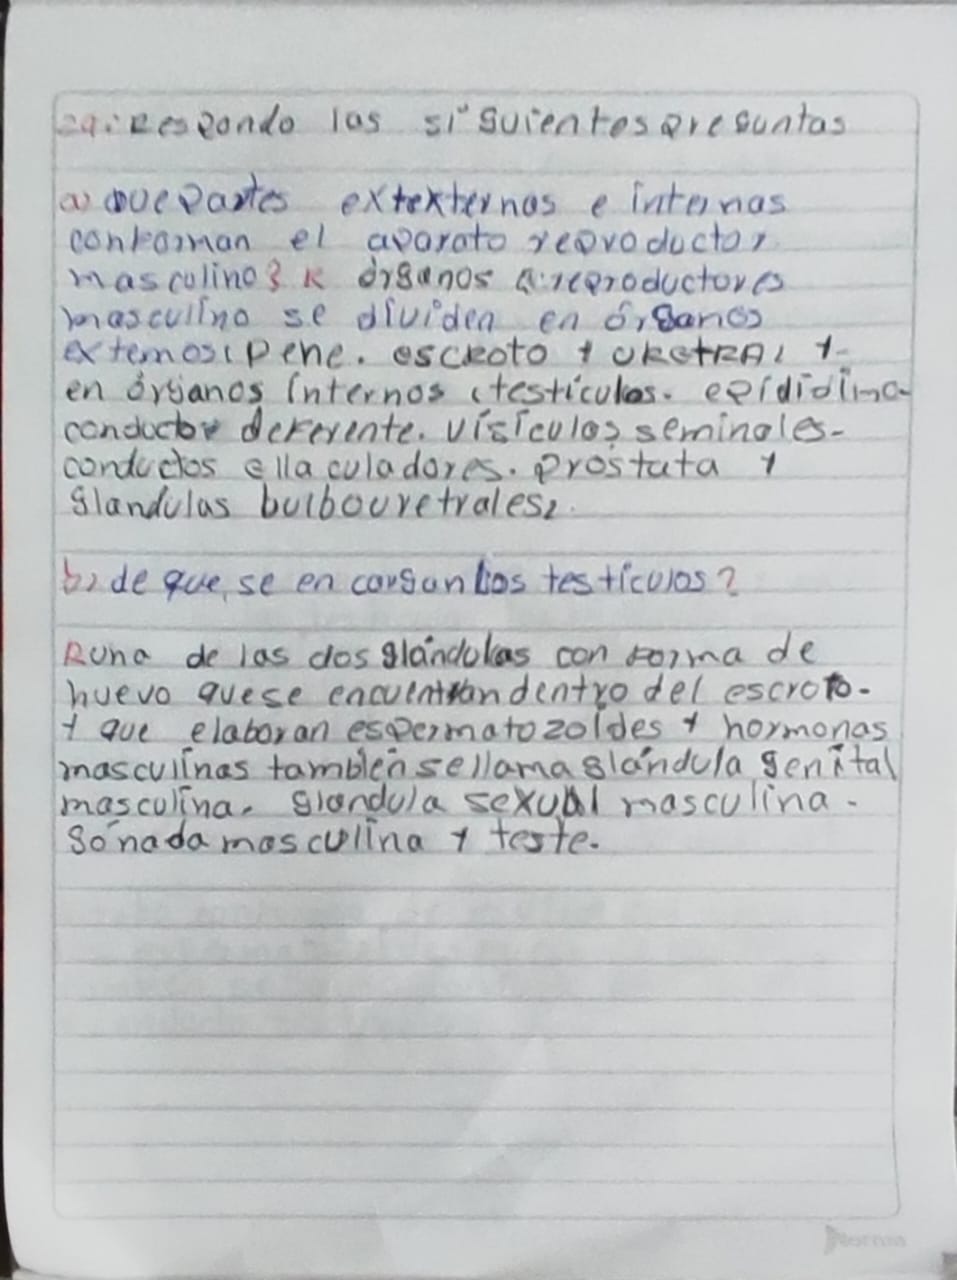 2a: Respondo las siguientes presuntas
a) que Partes extexternas e internas
conforman el aparato reproductor
masculino? R órganos a: reproductores
masculino se dividen en órganos
externos(pene. escroto y uretra) y
en órganos internos (testículos. epidídimo
conducto deferente. vísiculas seminales-
conductos ellaculadores. prostata y
glandulas bulbouretrales).
b) de que se en cargan los testículos?
R una de las dos glándulas con forma de
huevo que se encuentran dentro del escroto.
y que elaboran espermatozoides y hormonas
masculinas también se llama glándula genital
masculina. glandula sexual masculina.
gónada masculina y teste.
Norma